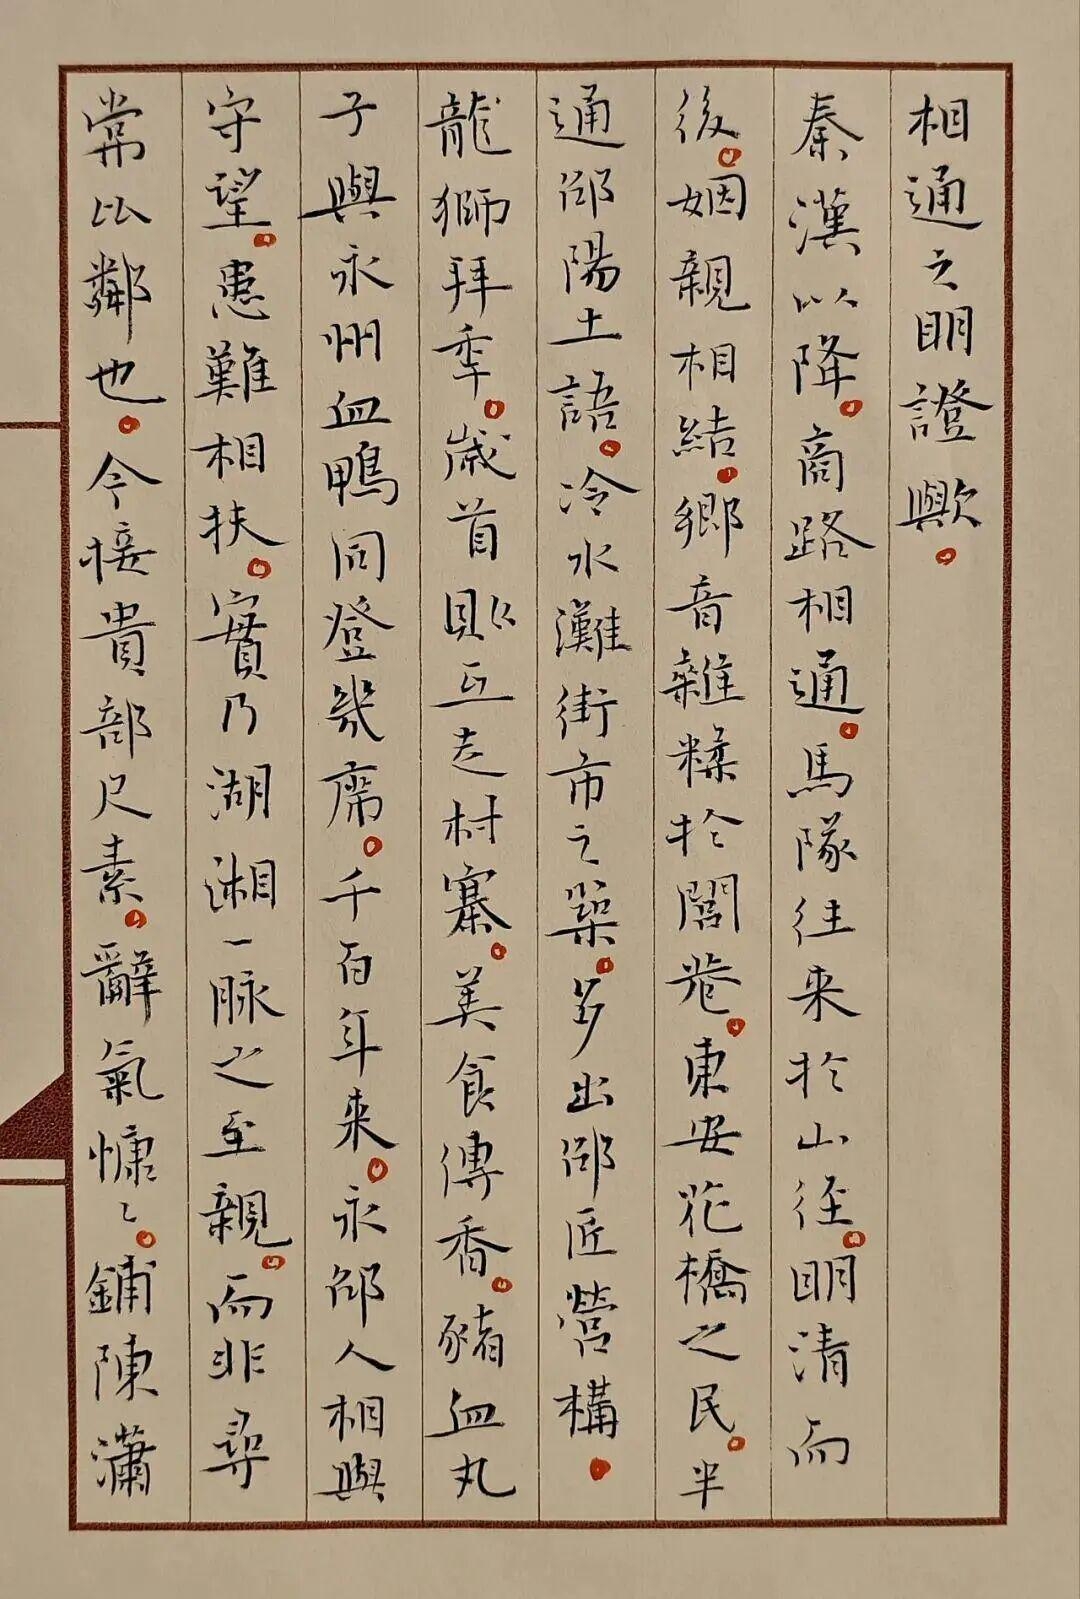 相通之明證歟。
秦漢以降。商路相通。馬隊往来於山径。明清而
後。姻親相結。鄉音雜糅於閭巷。東安花橋之民。半
通邵陽土語。冷水灘街市之築。多出邵匠營構。
龍獅拜季。歲首貺正走村寨。美食傳香。豬血丸
子與永州血鴨同登幾席。千百年来。永邵人相與
守望。患難相扶。實乃湖湘一脉之至親。而非尋
常比鄰也。今接貴部尺素。辭氣慷〻。鋪陳瀟